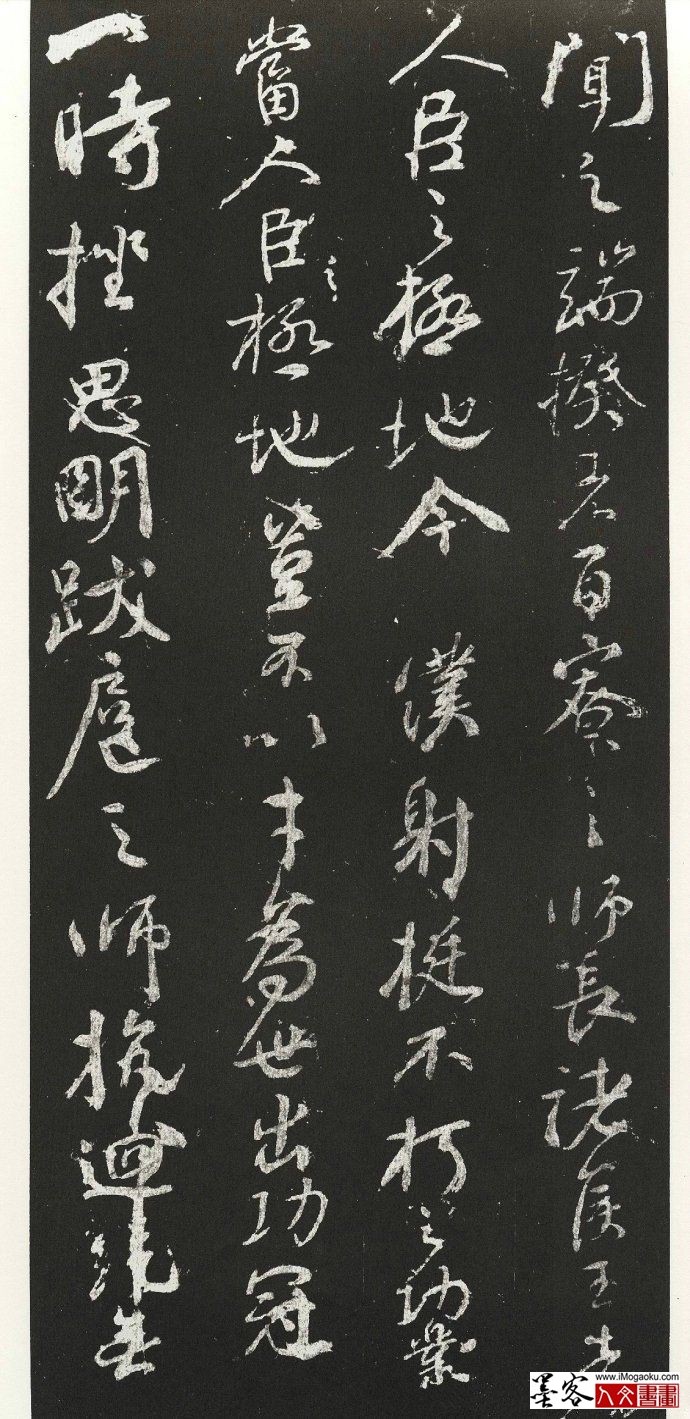 聞之端揆者百寮之師長諸侯王者
人臣之極地今僕射挺不朽之功業
當人臣之極地豈不以才為世出功冠
一時挫思明跋扈之師抗迴紇無
墨客
www.iMogaoku.com
人文書畫